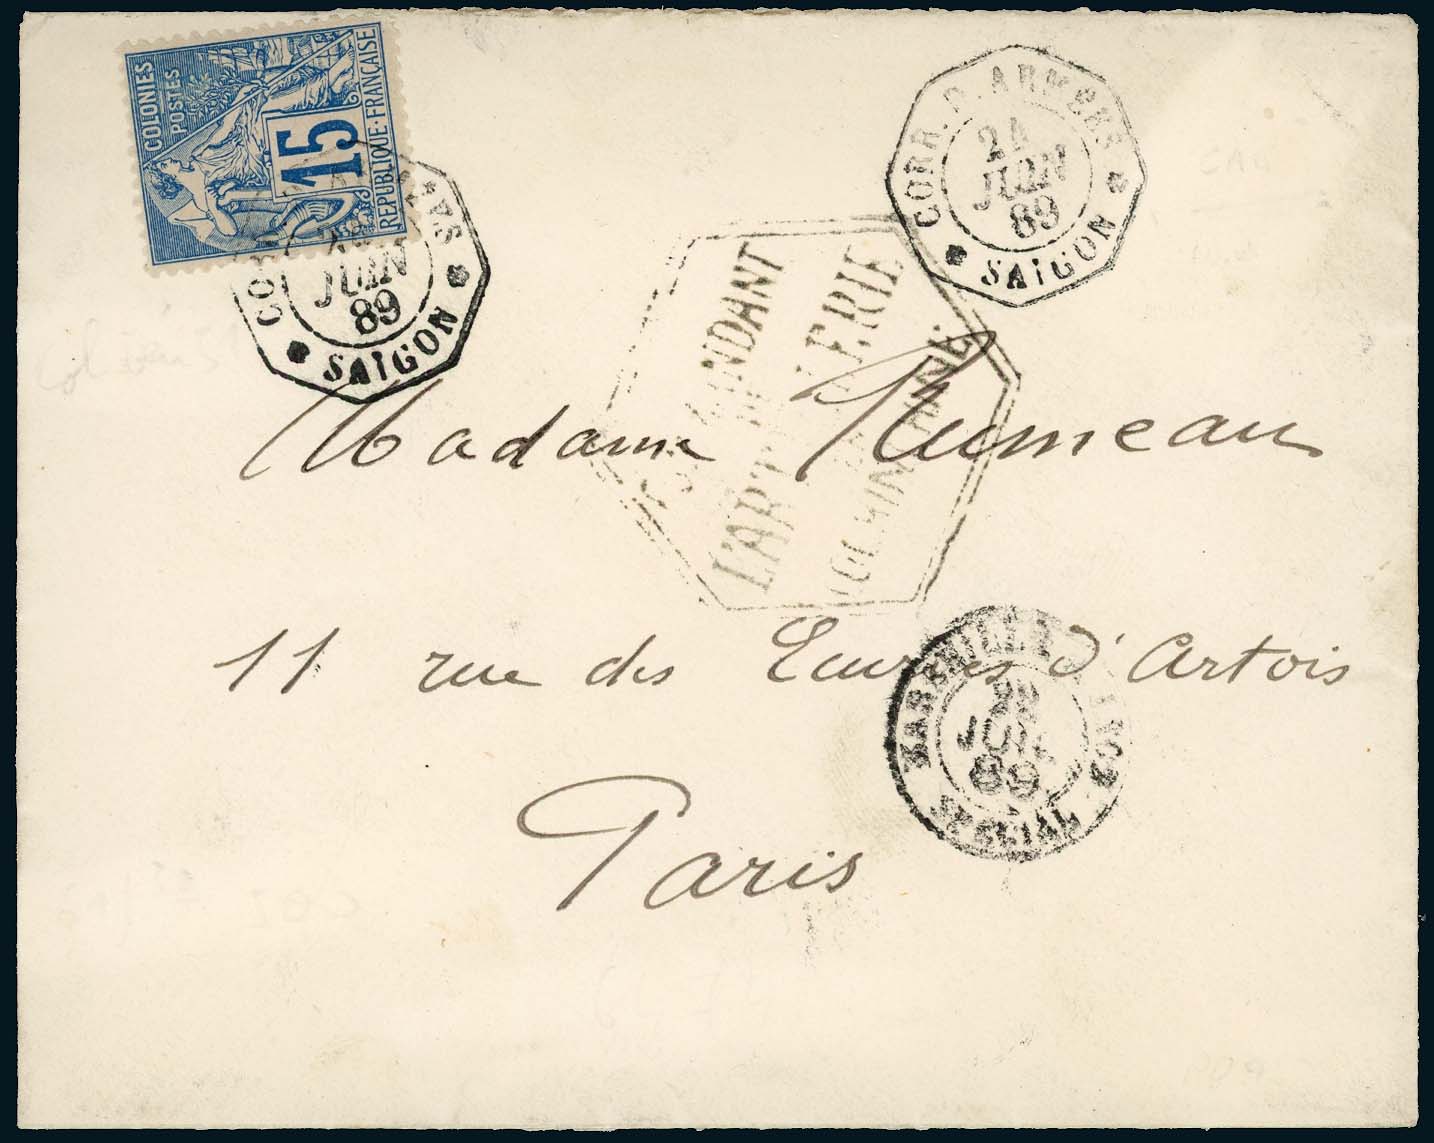 COLONIES
POSTES
15
REPUBLIQUE·FRANÇAISE
JUIN
89
SAÏGON
CORR. D. ARMÉES
24
JUIN
89
SAÏGON
COMMANDANT
L'ARTILLERIE
Madame Rumeau
11 rue des Ecuries d'Artois
Paris
MARSEILLE
JUIL
89
SPECIAL